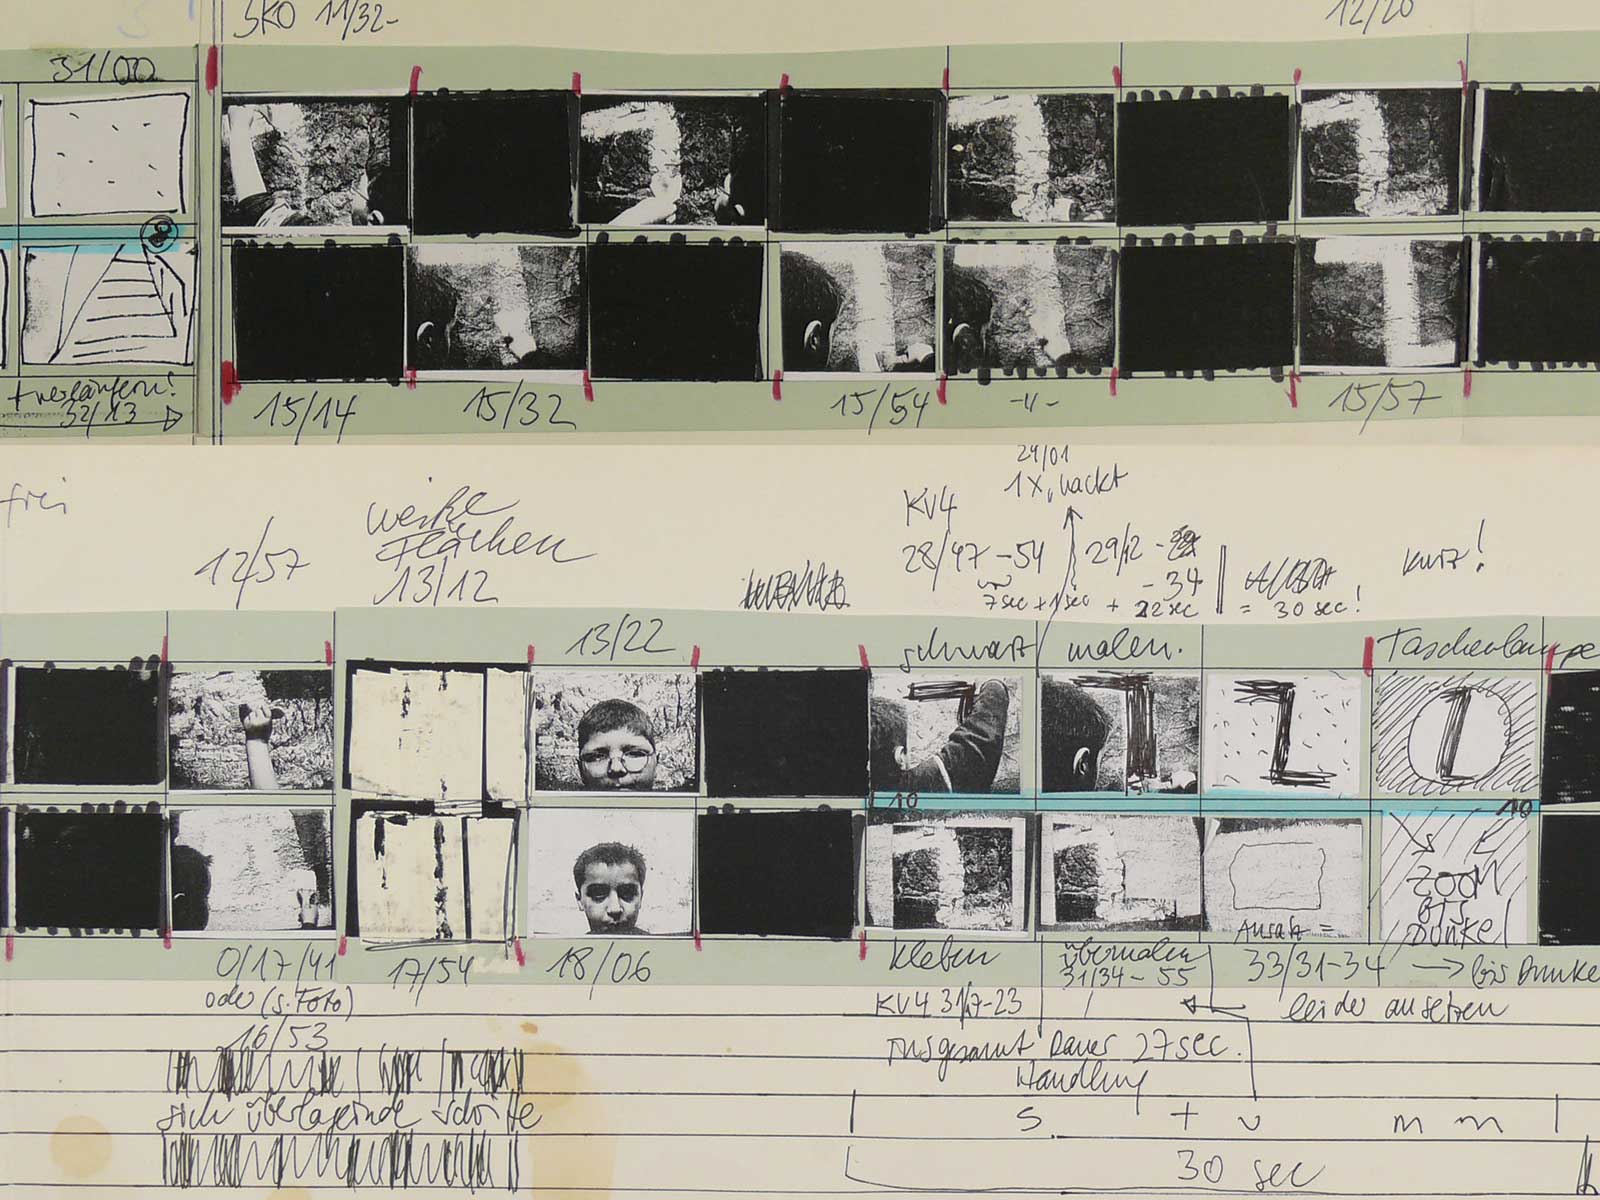 SKO 11/32-
12/20
31/00
verlängern!
32/13
15/14
15/32
15/54
-"-
15/57
frei
12/57
weiße
Flächen
13/12
13/22
29/01
1x, nackt
KV4
28/47-54
29/12-
-34
7sec + 1sec + 22sec
= 30 sec!
kurz!
schwarz malen.
Taschenlampe
10
10
ZOOM
BIS
DUNKEL
Ansatz =
0/17/41
oder (s. Foto)
16/53
17/54
18/06
kleben
übermalen
31/34-55
33/31-34 → bis Dunkel
KV4 31/17-23
leider aussetzen
Insgesamt Dauer 27sec.
Handlung
sich überlagernde Schnitte
s t u m m
30 sec